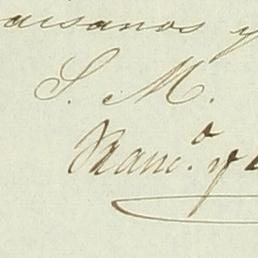 aisanos y
S. M.
Franc.º y